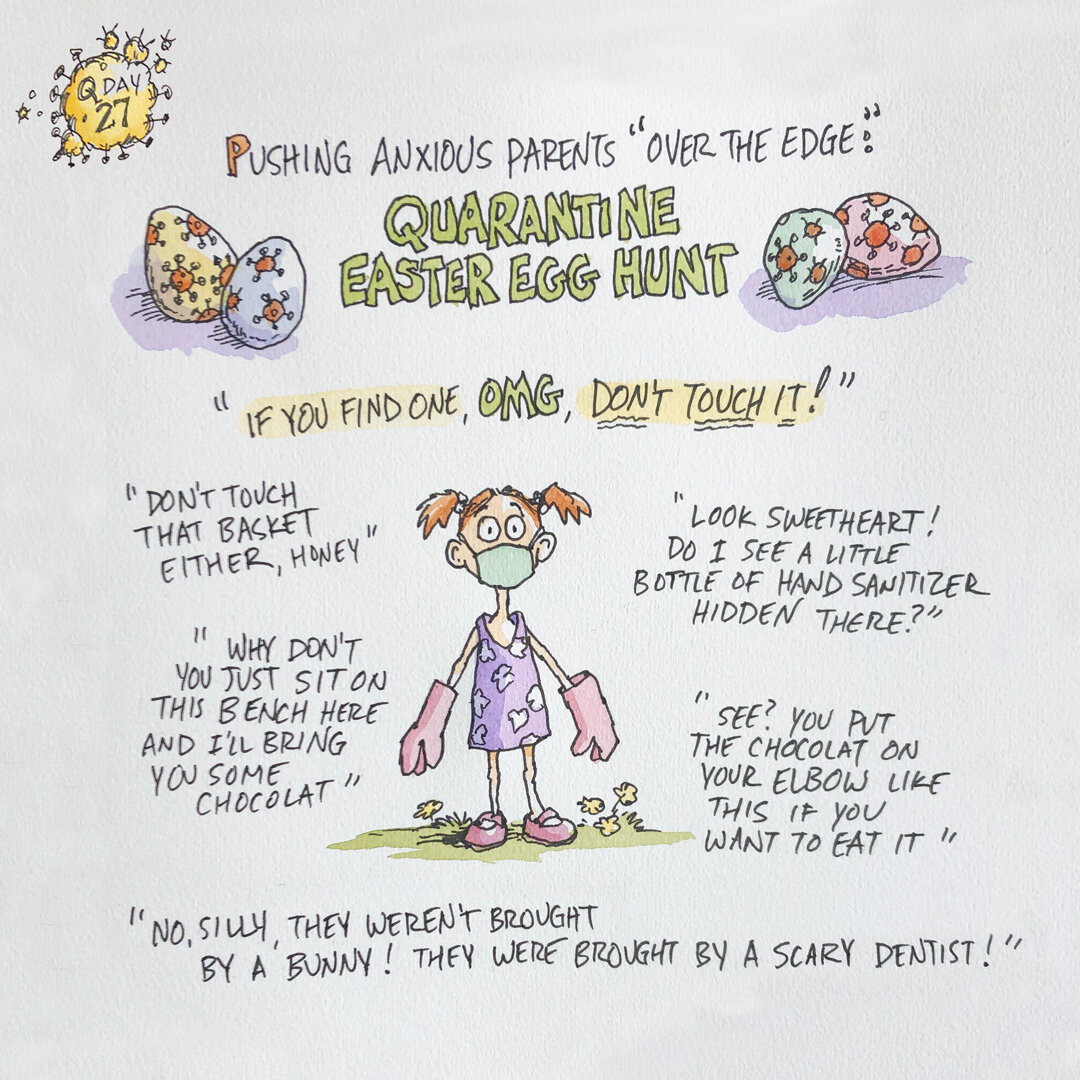 Q DAY
27
PUSHING ANXIOUS PARENTS "OVER THE EDGE:"
QUARANTINE
EASTER EGG HUNT
"IF YOU FIND ONE, OMG, DON'T TOUCH IT!"
"DON'T TOUCH
THAT BASKET
EITHER, HONEY"
"LOOK SWEETHEART!
DO I SEE A LITTLE
BOTTLE OF HAND SANITIZER
HIDDEN THERE?"
"WHY DON'T
YOU JUST SIT ON
THIS BENCH HERE
AND I'LL BRING
YOU SOME
CHOCOLAT"
"SEE? YOU PUT
THE CHOCOLAT ON
YOUR ELBOW LIKE
THIS IF YOU
WANT TO EAT IT"
"NO, SILLY, THEY WEREN'T BROUGHT
BY A BUNNY! THEY WERE BROUGHT BY A SCARY DENTIST!"